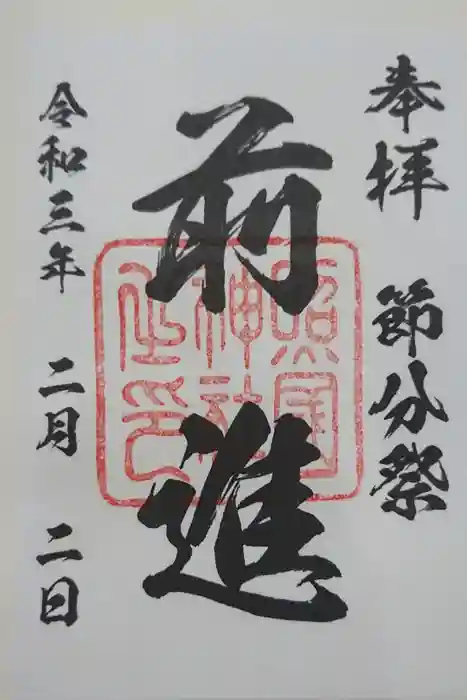 奉拝 節分祭
前進
照国神社之印
令和三年 二月 二日